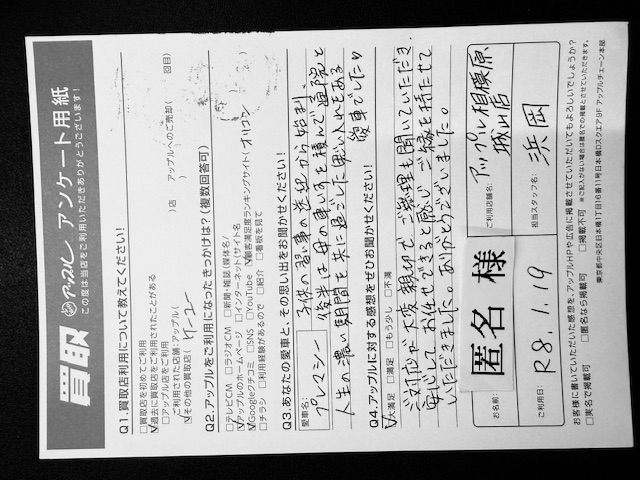 買取 アップル アンケート用紙
この度は当店をご利用いただきありがとうございます!
Q1.買取店利用について教えてください!
□買取店を初めてご利用
☑過去に買取店をご利用されたことがある
□アップル店をご利用
ご利用された店舗:アップル( )店 アップルへのご売却( 回目)
☑その他の買取店( )
Q2.アップルをご利用になったきっかけは?(複数回答可)
□テレビCM □ラジオCM □新聞・雑誌(媒体名/ )
☑アップルのホームページ □インターネット(サイト名 )
☑Googleクチコミ □SNS □YouTube ☑顧客満足度ランキングサイト(オリコン
□チラシ □利用経験があるので □紹介 □看板を見て
Q3.あなたの愛車と、その思い出をお聞かせください!
愛車名: プレマシー 子供の習事の送迎から始まり、
後半は母の車いすを積んで通院と
人生の濃い期間を共に過ごした思い入れもある
愛車でした
Q4.アップルに対する感想をぜひお聞かせください!
☑大満足 □満足 □もう少し □不満
ご対応が大変親切で ご無理も聞いていただき、
安心してお任せできると感じ ご縁を持たせて
いただきました。ありがとうございました。
お名前: 匿名 様
ご利用店舗名: アップル相模原城山店
ご利用日: R8.1.19
担当スタッフ名: 浜岡
お客様に書いていただいた感想を、アップルHPや広告に掲載させていただいてもよろしいでしょうか?
□実名で掲載可 □匿名なら掲載可 □掲載不可 ※ご記入がない場合は匿名での掲載とさせていただきます。
東京都中央区日本橋1丁目16番11号日本橋Dスクエア9F アップルチェーン本部